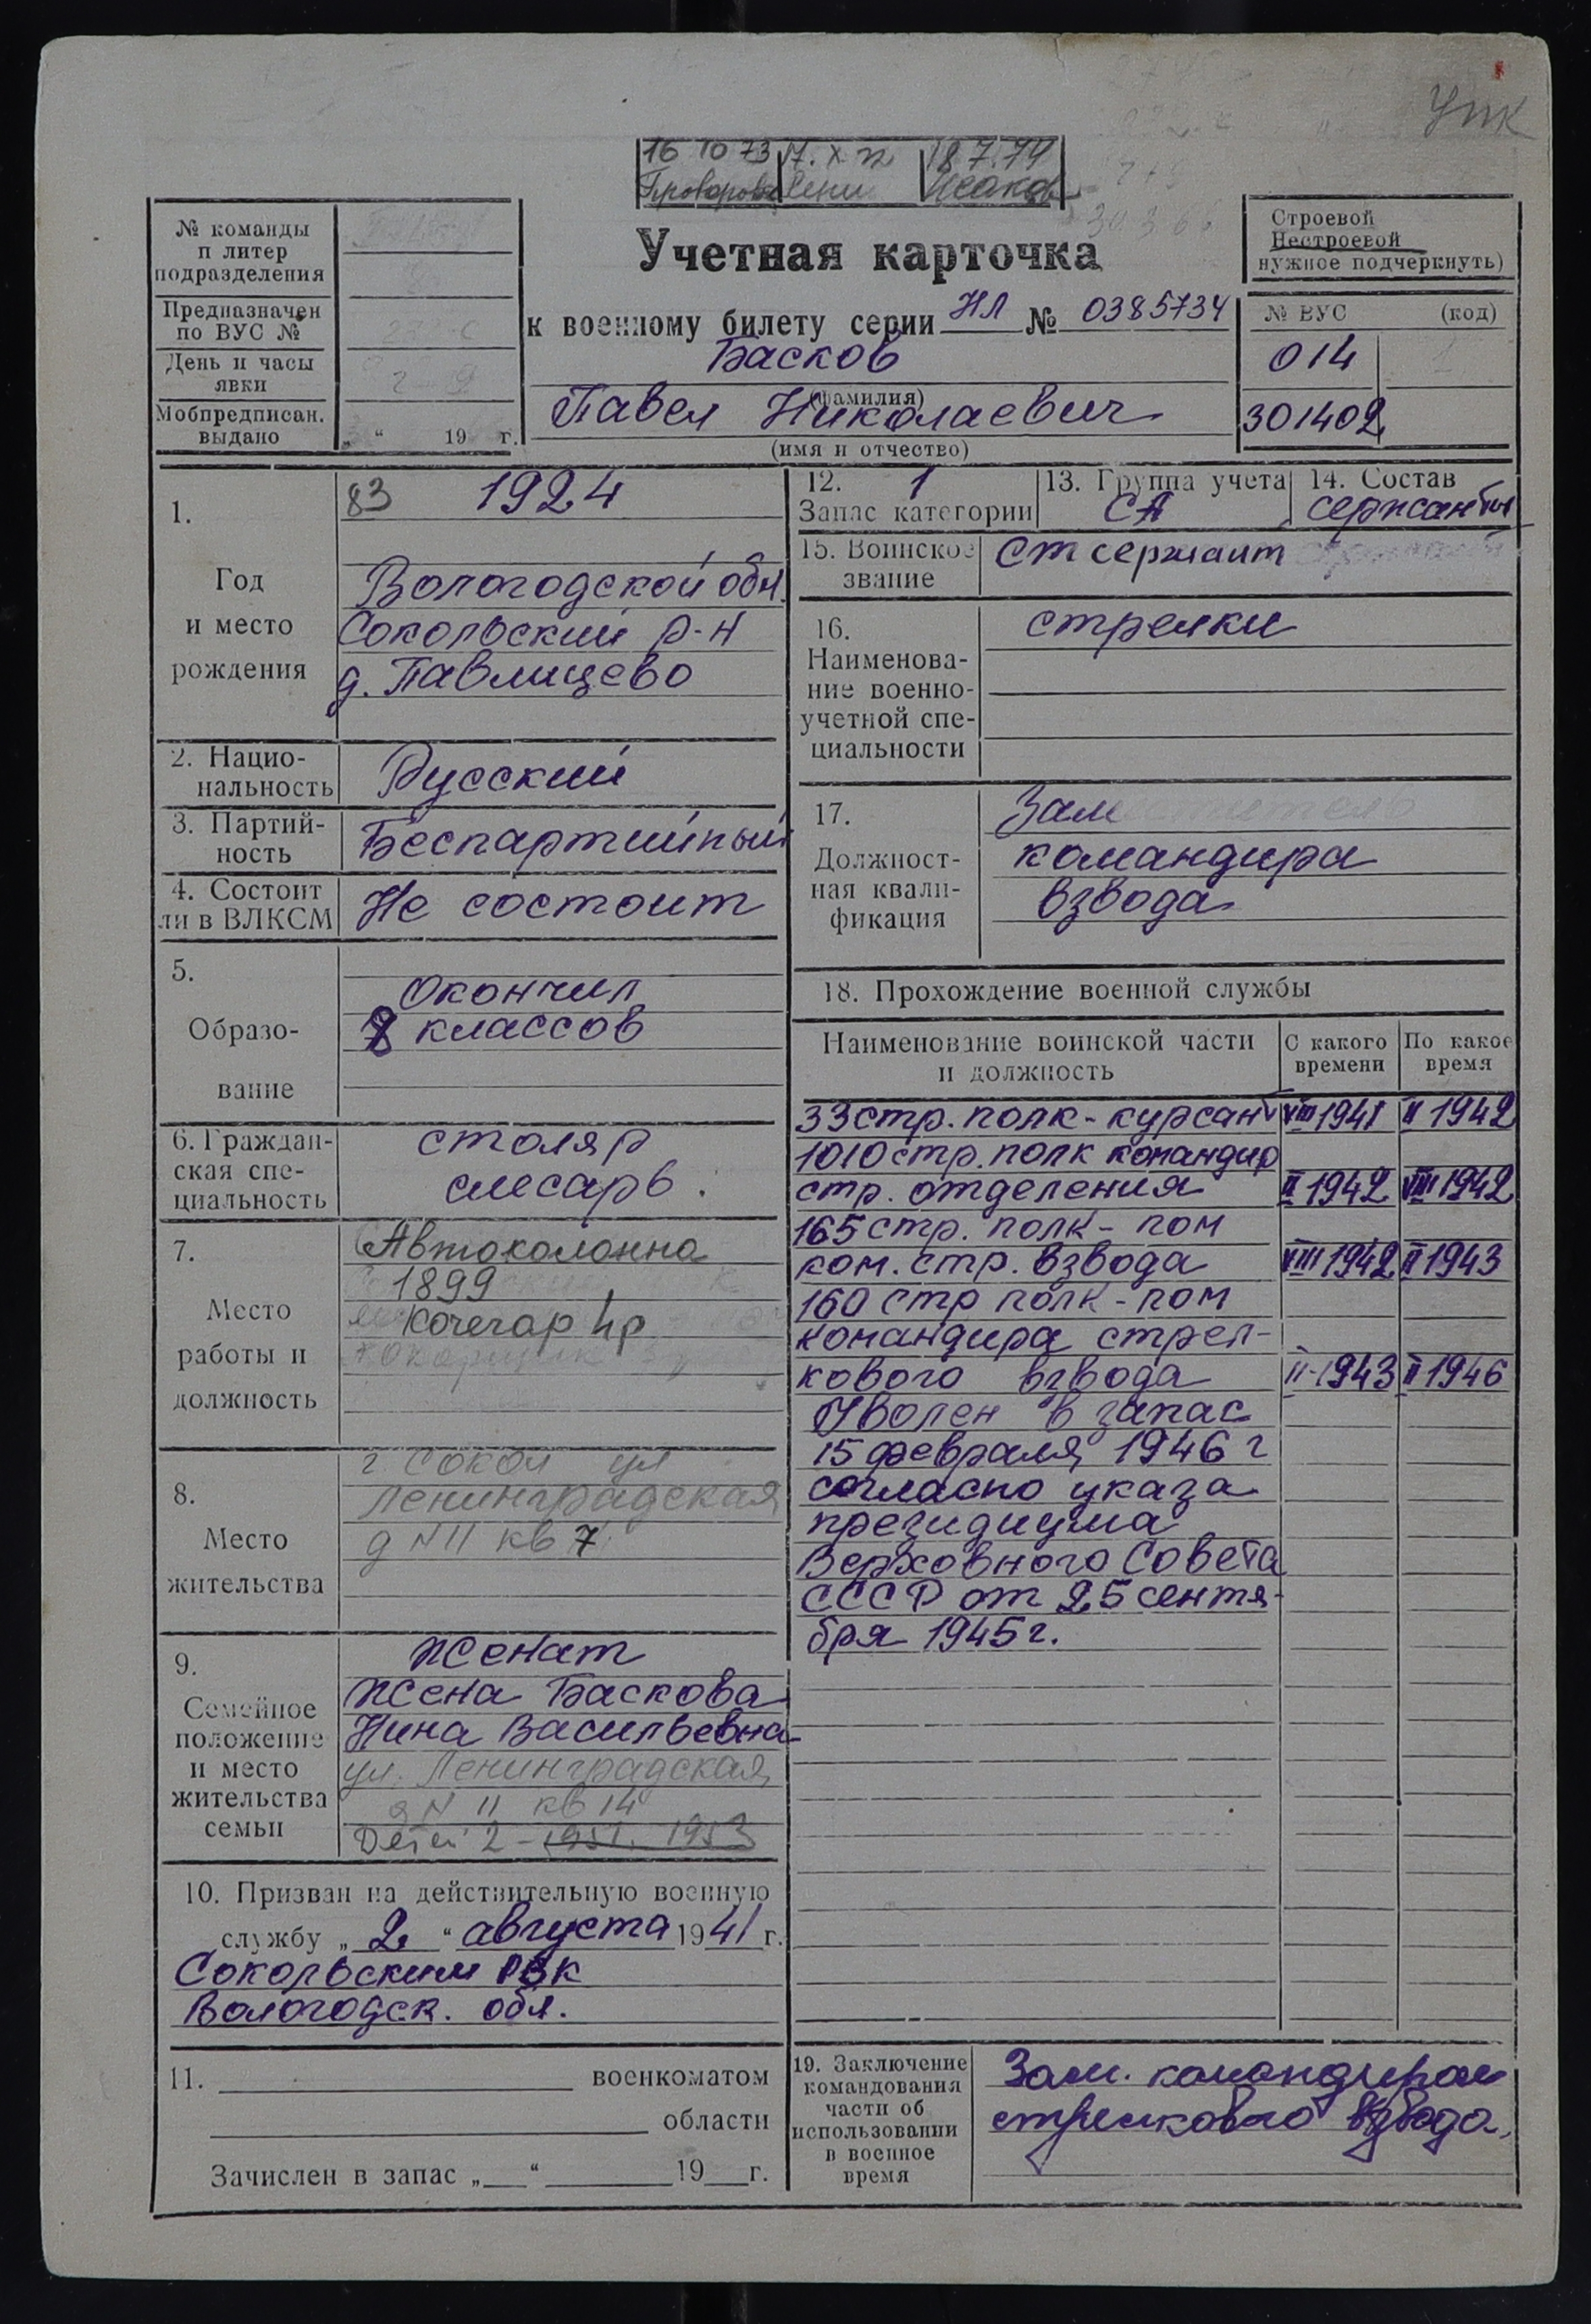 УПК
16 10 73 17. X 72 18 7.74
Строевой
Нестроевой
нужное подчеркнуть)
№ команды
и литер
подразделения
Предназначен
по ВУС №
День и часы
явки
Мобпредписан.
выдано „ “ 19 г.
Учетная карточка
к военному билету серии НЛ № 0385734
Басков
(фамилия)
Павел Николаевич
(имя и отчество)
№ ВУС (код)
014
301402
1.
Год
и место
рождения
83 1924
Вологодской обл.
Сокольский р-н
д. Павлищево
2. Нацио-
нальность
Русский
3. Партий-
ность
Беспартийный
4. Состоит
ли в ВЛКСМ
Не состоит
5.
Образо-
вание
Окончил
8 классов
6. Граждан-
ская спе-
циальность
столяр
слесарь.
7.
Место
работы и
должность
Автоколонна
1899
Кочегар 4р
8.
Место
жительства
г Сокол ул
Ленинградская
д N 11 кв 7
9.
Семейное
положение
и место
жительства
семьи
Женат
Жена Баскова
Нина Васильевна
ул. Ленинградская
д N 11 кв 14
Детей 2 - 1951. 1953
10. Призван на действительную военную
службу „2“ августа 1941 г.
Сокольским РВК
Вологодск. обл.
11. военкоматом
области
Зачислен в запас „ “ 19 г.
12. 1
Запас категории
13. Группа учета
СА
14. Состав
сержанты
15. Воинское
звание
Ст сержант
16.
Наименова-
ние военно-
учетной спе-
циальности
стрелки
17.
Должност-
ная квали-
фикация
Заместитель
командира
взвода
18. Прохождение военной службы
Наименование воинской части
и должность
С какого
времени
По какое
время
33 стр. полк - курсант VIII 1941 II 1942
1010 стр. полк командир
стр. отделения II 1942 VIII 1942
165 стр. полк - пом
ком. стр. взвода VIII 1942 II 1943
160 стр полк - пом
командира стрел-
кового взвода II-1943 II 1946
Уволен в запас
15 февраля 1946 г
согласно указа
президиума
Верховного Совета
СССР от 25 сентя-
бря 1945 г.
19. Заключение
командования
части об
использовании
в военное
время
Зам. командира
стрелкового взвода.